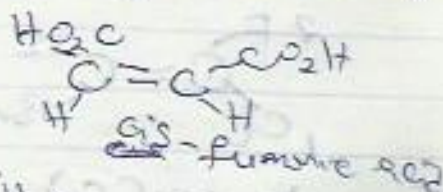 HO₂C CO₂H
C = C
H H
cis-fumaric acid